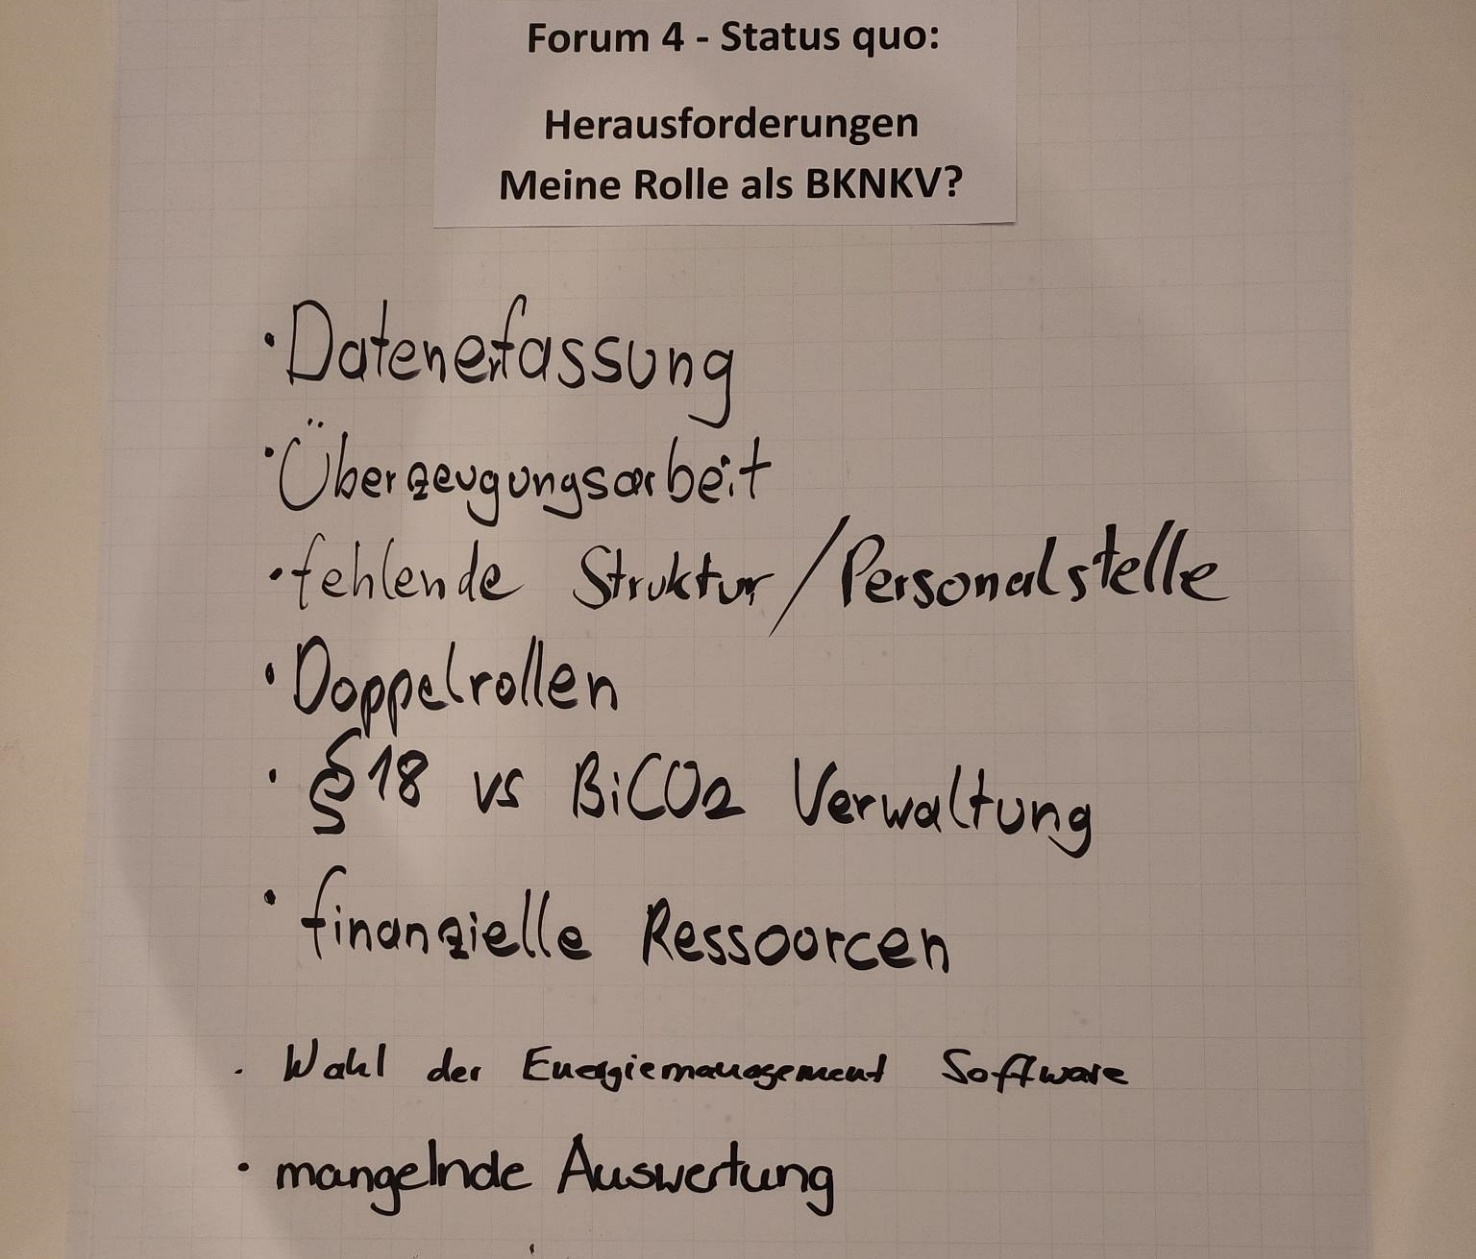 Forum 4 - Status quo:
Herausforderungen
Meine Rolle als BKNKV?
· Datenerfassung
· Überzeugungsarbeit
· fehlende Struktur / Personalstelle
· Doppelrollen
· §18 vs BiCO2 Verwaltung
· finanzielle Ressourcen
· Wahl der Energiemanagement Software
· mangelnde Auswertung